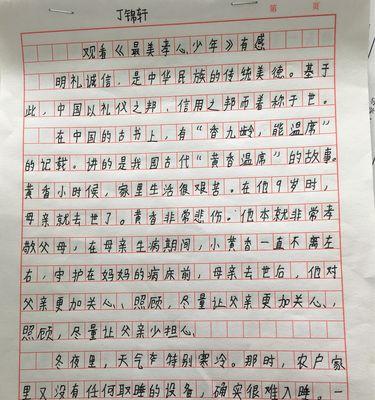 丁锦轩
第 页
观看《最美孝心少年》有感
明礼诚信，是中华民族的传统美德。基于
此，中国以礼仪之邦，信用之邦而著称于世。
在中国的古书上，有“香九龄，能温席”
的记载。讲的是我国古代“黄香温席”的故事。
黄香小时候，家里生活很艰苦。在他9岁时，
母亲就去世了。黄香非常悲伤。他本就非常孝
敬父母，在母亲生病期间，小黄香一直不离左
右，守护在妈妈的病床前，母亲去世后，他对
父亲更加关心、照顾，尽量让父亲更加关心、
照顾，尽量让父亲少担心
冬夜里，天气特别寒冷。那时，农户家
里又没有任何取暖的设备，确实很难入睡。一